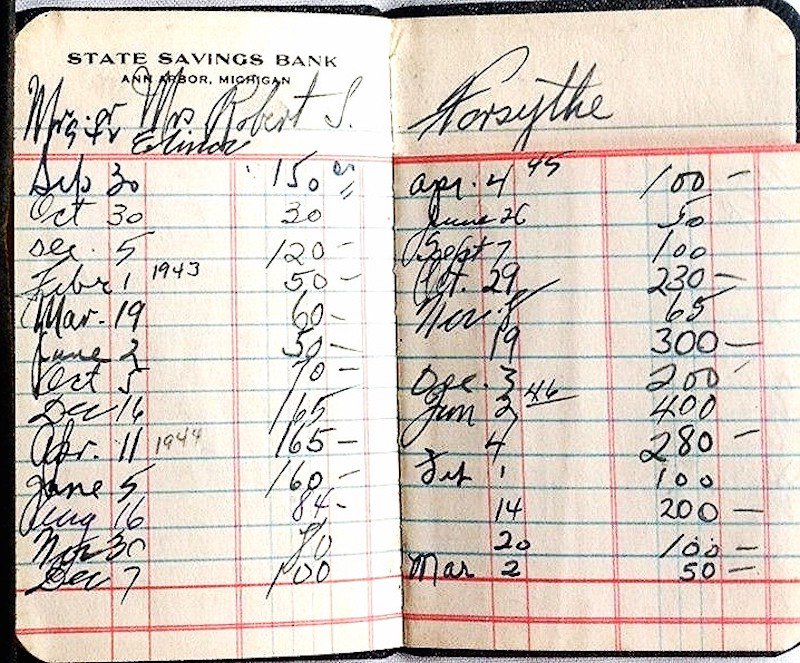 STATE SAVINGS BANK
ANN ARBOR, MICHIGAN
Mr. or Mrs Robert S.
Elinor
Sep 30 150
Oct 30 30
Dec. 5 120 -
Febr 1 1943 50 -
Mar. 19 60 -
June 2 50 -
Oct 5 70 -
Dec 16 165
Apr. 11 1944 165 -
June 5 160 -
Aug 16 84 -
Nov 30
Dec 7 100
Forsythe
Apr. 4 45 100 -
June 26 50
Sept 7 100
Oct. 29 230 -
Nov. 8 65
19 300 -
Dec. 3 200
Jan 2 46 400
4 280 -
Feb 1 100
14 200 -
20 100 -
Mar 2 50 -